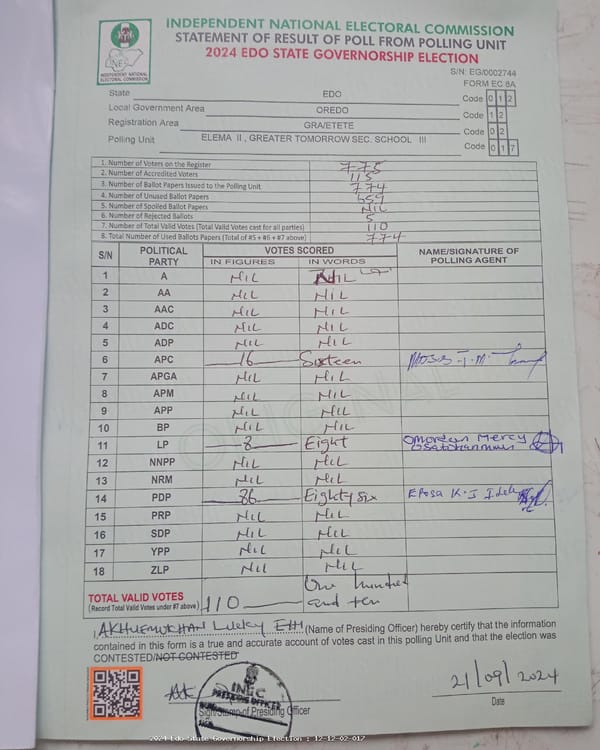 INDEPENDENT NATIONAL ELECTORAL COMMISSION
STATEMENT OF RESULT OF POLL FROM POLLING UNIT
2024 EDO STATE GOVERNORSHIP ELECTION
INDEPENDENT NATIONAL ELECTORAL COMMISSION
S/N: EG/0002744
FORM EC 8A
State EDO Code 0 1 2
Local Government Area OREDO Code 1 2
Registration Area GRA/ETETE Code 0 2
Polling Unit ELEMA II , GREATER TOMORROW SEC. SCHOOL III Code 0 1 7
1. Number of Voters on the Register 775
2. Number of Accredited Voters 115
3. Number of Ballot Papers Issued to the Polling Unit 774
4. Number of Unused Ballot Papers 659
5. Number of Spoiled Ballot Papers NIL
6. Number of Rejected Ballots 5
7. Number of Total Valid Votes (Total Valid Votes cast for all parties) 110
8. Total Number of Used Ballots Papers (Total of #5 + #6 + #7 above) 774
S/N POLITICAL PARTY VOTES SCORED NAME/SIGNATURE OF POLLING AGENT
IN FIGURES IN WORDS
1 A NIL NIL
2 AA NIL NIL
3 AAC NIL NIL
4 ADC NIL NIL
5 ADP NIL NIL
6 APC 16 Sixteen
7 APGA NIL NIL
8 APM NIL NIL
9 APP NIL NIL
10 BP NIL NIL
11 LP 8 Eight Mercy
12 NNPP NIL NIL
13 NRM NIL NIL
14 PDP 86 Eighty six K.J
15 PRP NIL NIL
16 SDP NIL NIL
17 YPP NIL NIL
18 ZLP NIL NIL
TOTAL VALID VOTES
(Record Total Valid Votes under #7 above) 110 One hundred and ten
I, Lucky (Name of Presiding Officer) hereby certify that the information
contained in this form is a true and accurate account of votes cast in this polling Unit and that the election was
CONTESTED/NOT CONTESTED
INEC
PRESIDING OFFICER
Sign/Stamp of Presiding Officer
21/09/2024
Date
2024 Edo State Governorship Election : 12-12-02-017